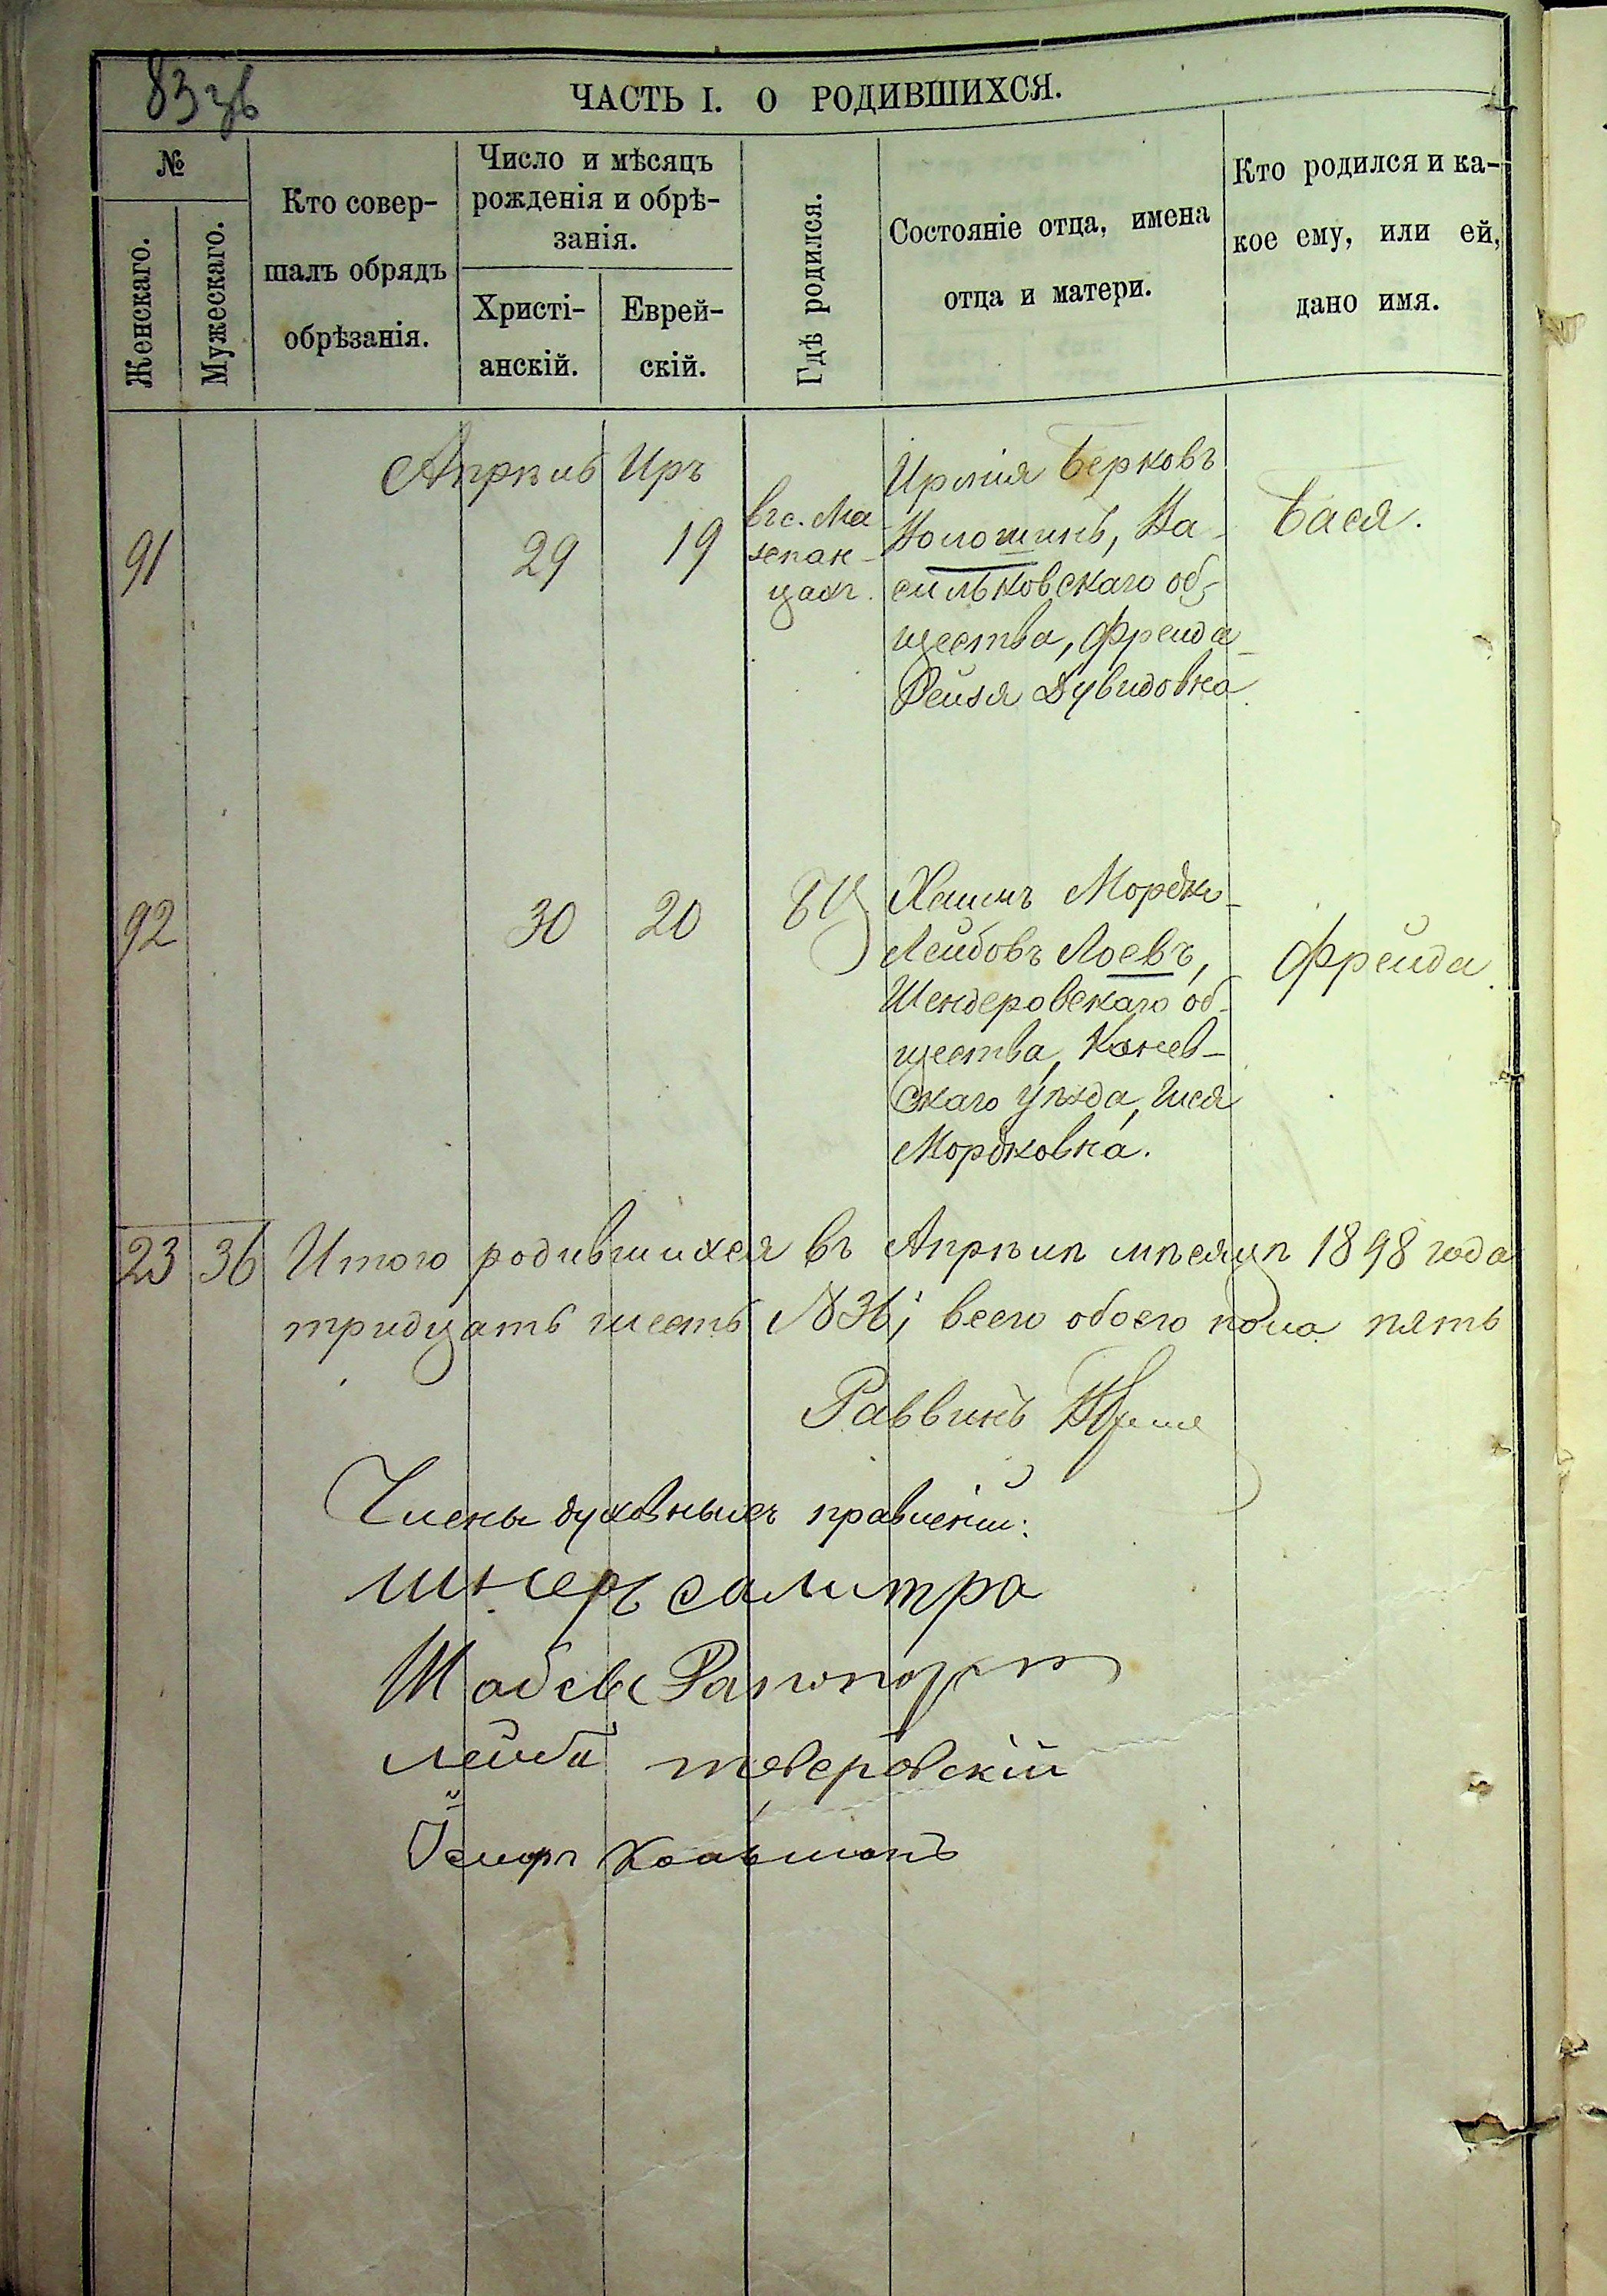 83 зв
ЧАСТЬ I. О РОДИВШИХСЯ.
№
Женскаго.
Мужескаго.
Кто совер-
шалъ обрядъ
обрѣзанія.
Число и мѣсяцъ
рожденія и обрѣ-
занія.
Христі-
анскій.
Еврей-
скій.
Гдѣ родился.
Состояніе отца, имена
отца и матери.
Кто родился и ка-
кое ему, или ей,
дано имя.
Апрѣль Иръ
91
29
19
въ с. Ма
зепин
цахъ.
Ирмія Берковъ
Волошинъ, Ва-
сильковскаго об-
щества, Фрейда-
Рейзя Дувидовна
Бася.
92
30
20
БЦ
Хаимъ Мордко-
Лейбовъ Лоевъ,
Шендеровскаго об-
щества, Канев-
скаго уѣзда, Шея
Мордковна.
Фрейда.
23 36 Итого родившихся въ Апрѣлѣ мѣсяцѣ 1898 года
тридцать шесть № 36; всего обоего пола пять
Раввинъ
Члены духовныхъ правленій:
салитра
Рапопортъ
Лейба тверовскій